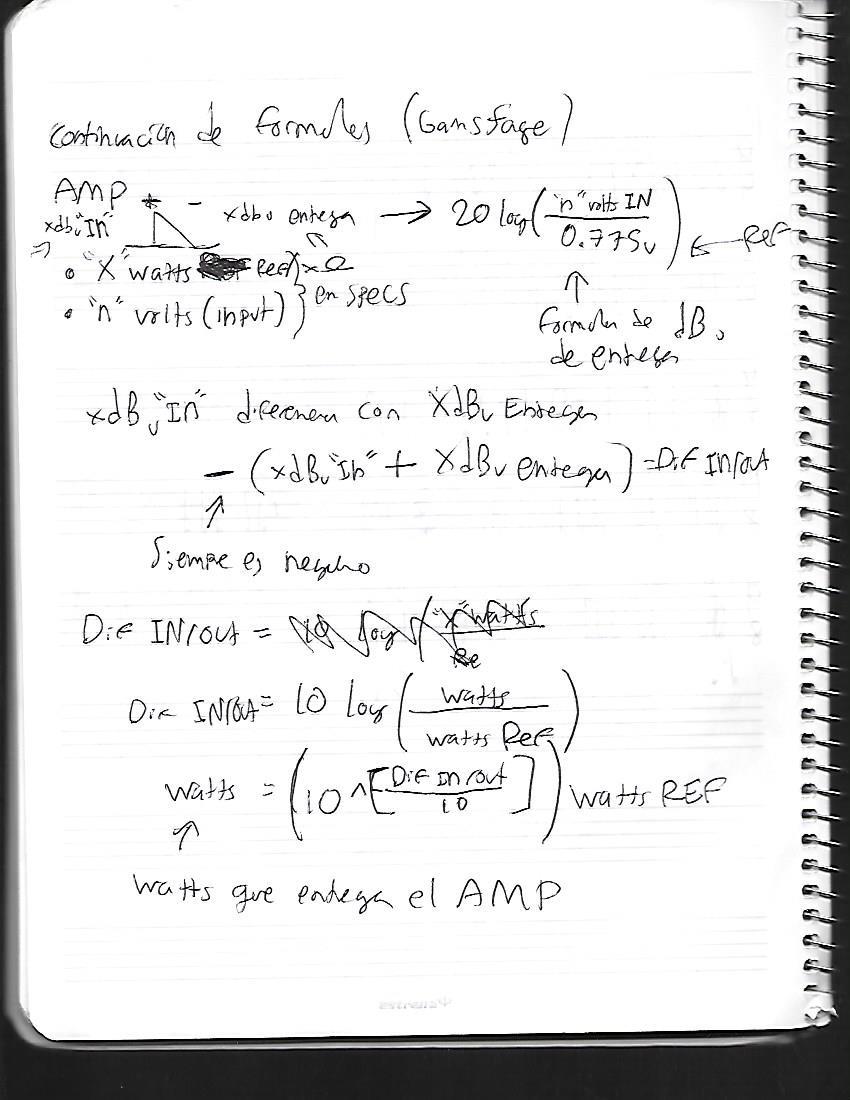 Continuación de Formulas (Gainstage)
AMP + -
xdBu "In" xdBu entrega → 20 log ( "n" volts IN / 0.775v ) ← REF
• "X" watts REF / xΩ
• "n" volts (input) } en specs
Formula de dBu
de entrega
xdBu "In" diferencia con XdBu Entrega
- (xdBu "In" + XdBu entrega) = Dif IN/out
Siempre es negativo
Dif IN/out = 10 log ( "X" watts / Re
Dif IN/OUT = 10 log ( watts / watts Ref )
watts = (10 ^ [ Dif in/out / 10 ] ) watts REF
watts que entrega el AMP
estrella